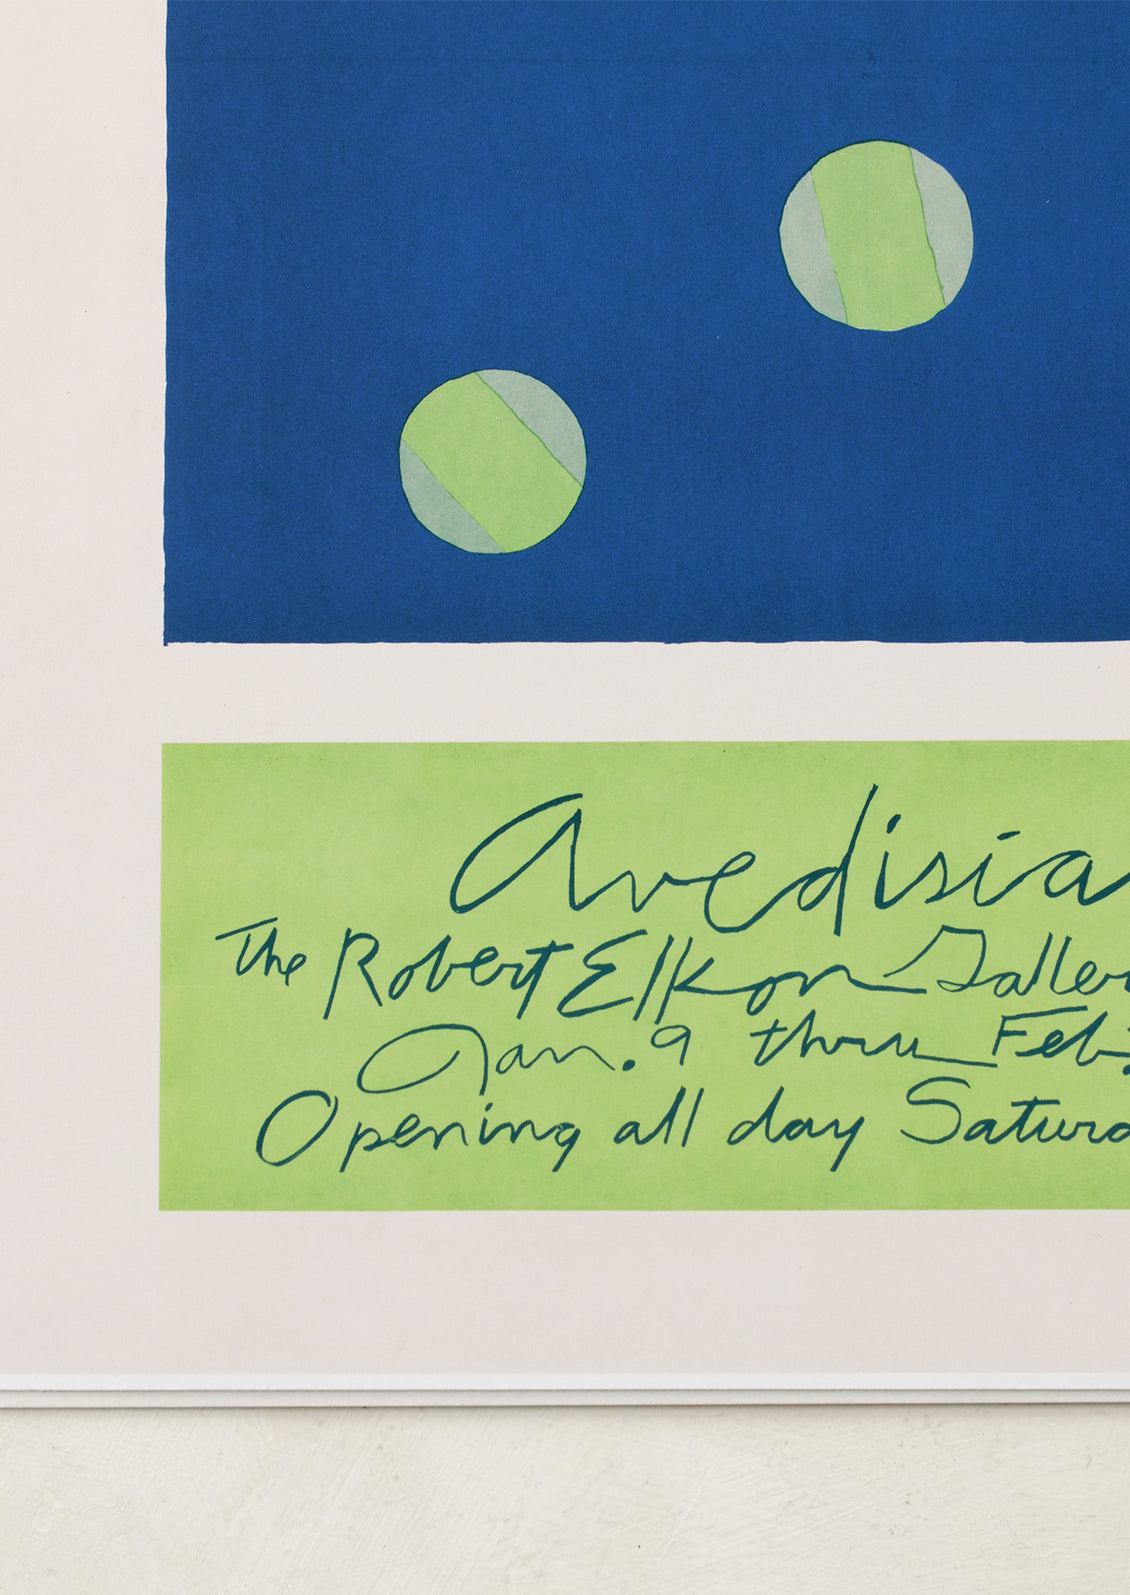 Avedisia
The Robert Elkon Galler
Jan. 9 thru Feb.
Opening all day Saturd